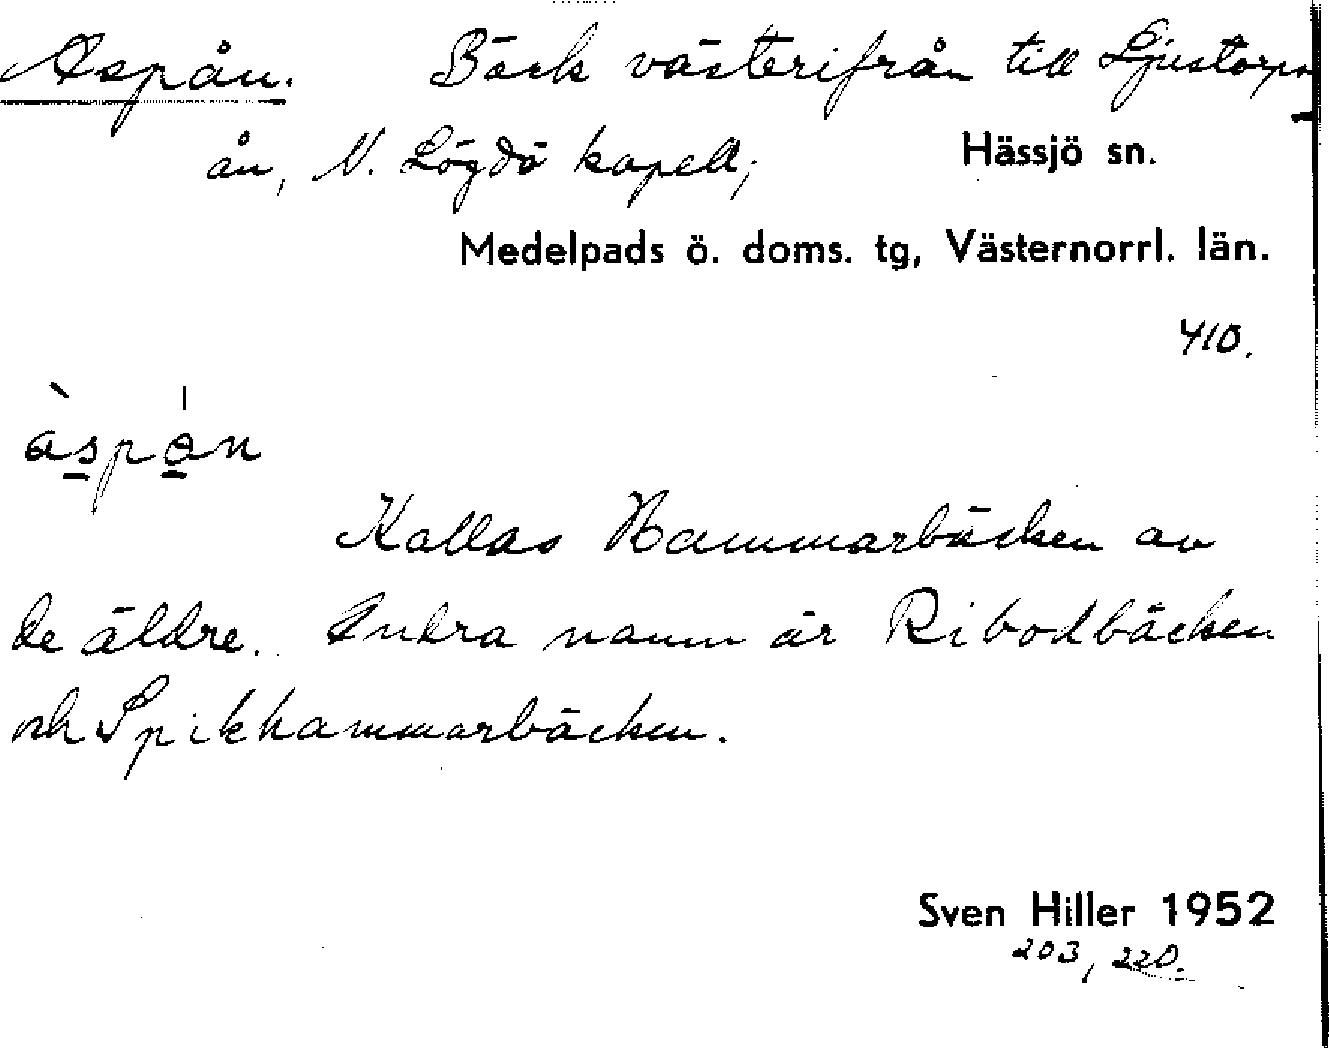 Aspån. Bäck västerifrån till Ljustorps-
ån, N. Lögdö kapell; Hässjö sn.
Medelpads ö. doms. tg, Västernorrl. län.
410.
àspån
Kallas Hammarbäcken av
de äldre. Andra namn är Ribodbäcken
och Spikhammarbäcken.
Sven Hiller 1952
203, 220.